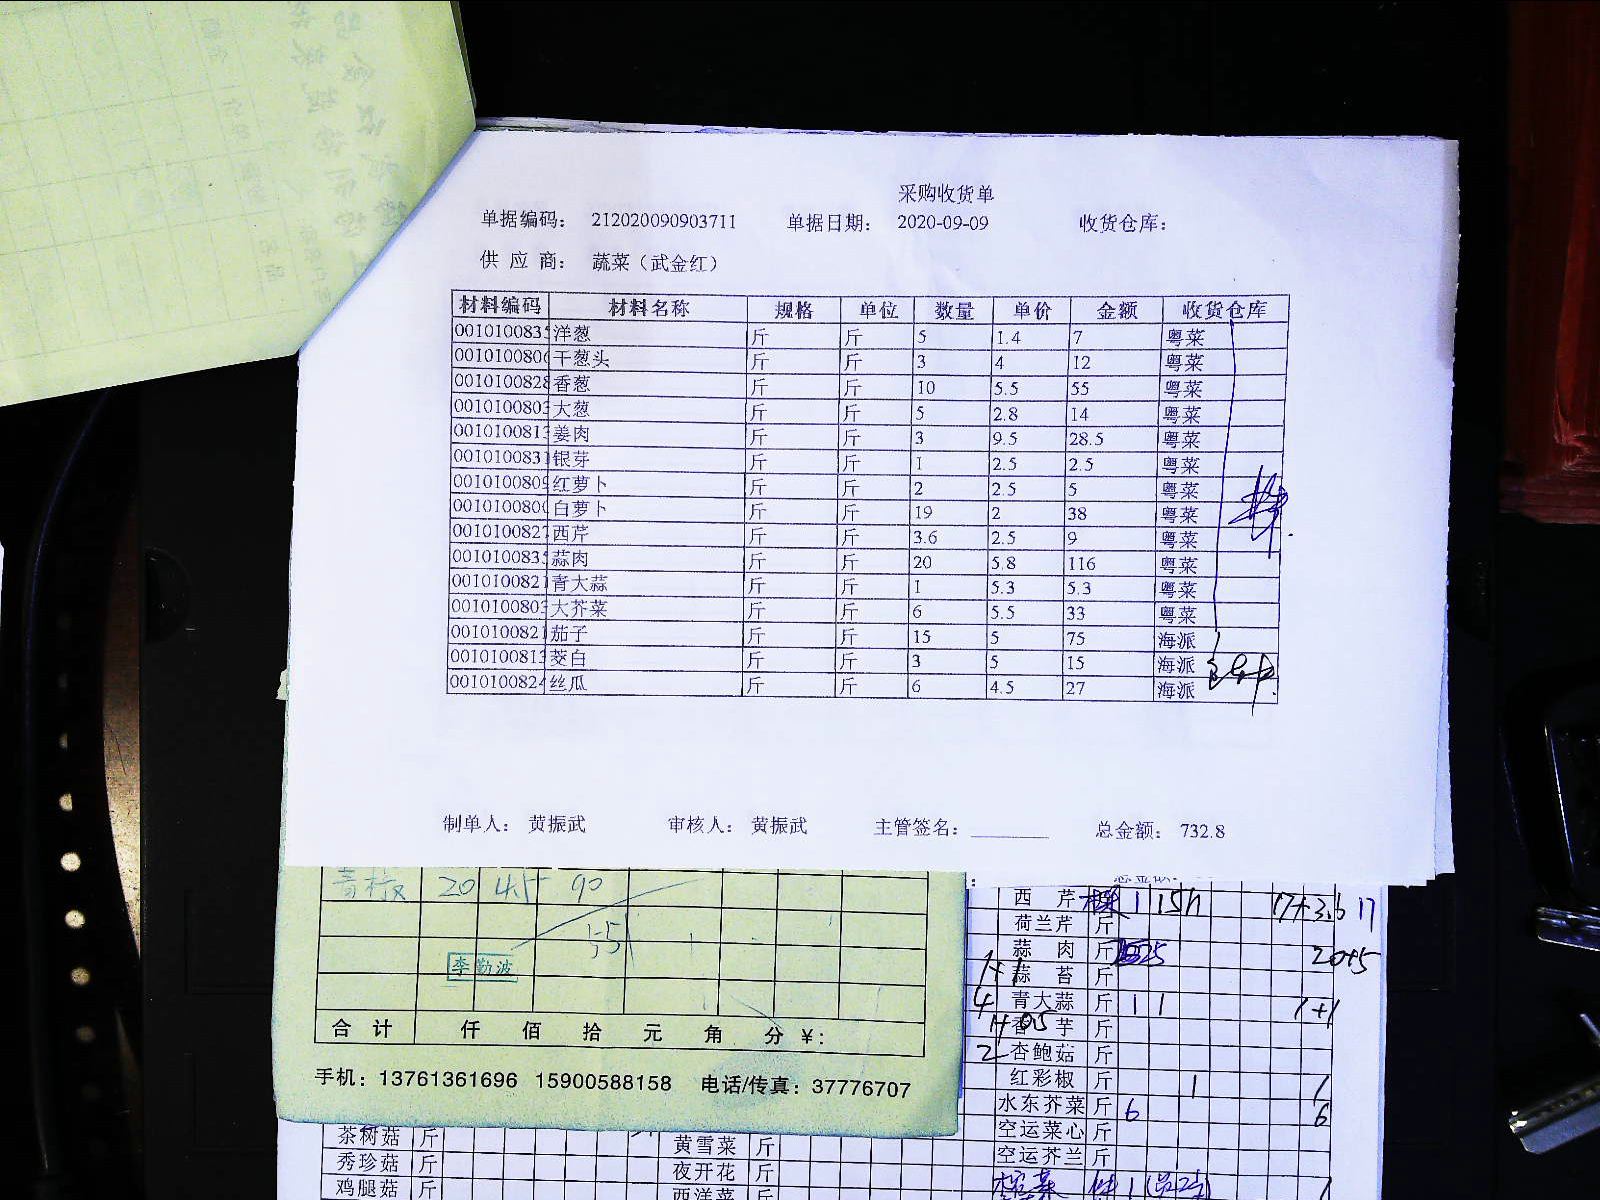 采购收货单
单据编码： 212020090903711 单据日期： 2020-09-09 收货仓库：
供 应 商： 蔬菜（武金红）
材料编码 材料名称 规格 单位 数量 单价 金额 收货仓库
0010100835 洋葱 斤 斤 5 1.4 7 粤菜
001010080 干葱头 斤 斤 3 4 12 粤菜
0010100828 香葱 斤 斤 10 5.5 55 粤菜
001010080 大葱 斤 斤 5 2.8 14 粤菜
001010081 姜肉 斤 斤 3 9.5 28.5 粤菜
001010083 银芽 斤 斤 1 2.5 2.5 粤菜
001010080 红萝卜 斤 斤 2 2.5 5 粤菜
001010080 白萝卜 斤 斤 19 2 38 粤菜
001010082 西芹 斤 斤 3.6 2.5 9 粤菜
001010083 蒜肉 斤 斤 20 5.8 116 粤菜
001010082 青大蒜 斤 斤 1 5.3 5.3 粤菜
001010080 大芥菜 斤 斤 6 5.5 33 粤菜
001010082 茄子 斤 斤 15 5 75 海派
001010081 茭白 斤 斤 3 5 15 海派
001010082 丝瓜 斤 斤 6 4.5 27 海派
制单人： 黄振武 审核人： 黄振武 主管签名： 总金额： 732.8
青椒 20 4.5 90
551
李勤波
合 计 仟 佰 拾 元 角 分 ￥：
手机：13761361696 15900588158 电话/传真：37776707
西 芹 棵 1 17+3.6 17
荷兰芹 斤
蒜 肉 斤 25 20+5
蒜 苔 斤
4 青大蒜 斤 1 1 1+1
香 芋 斤
2 杏鲍菇 斤
红彩椒 斤 1 1
水东芥菜 斤 6 6
空运菜心 斤
空运芥兰 斤
茶树菇 斤 黄雪菜 斤
秀珍菇 斤 夜开花 斤
鸡腿菇 斤 西洋菜 斤